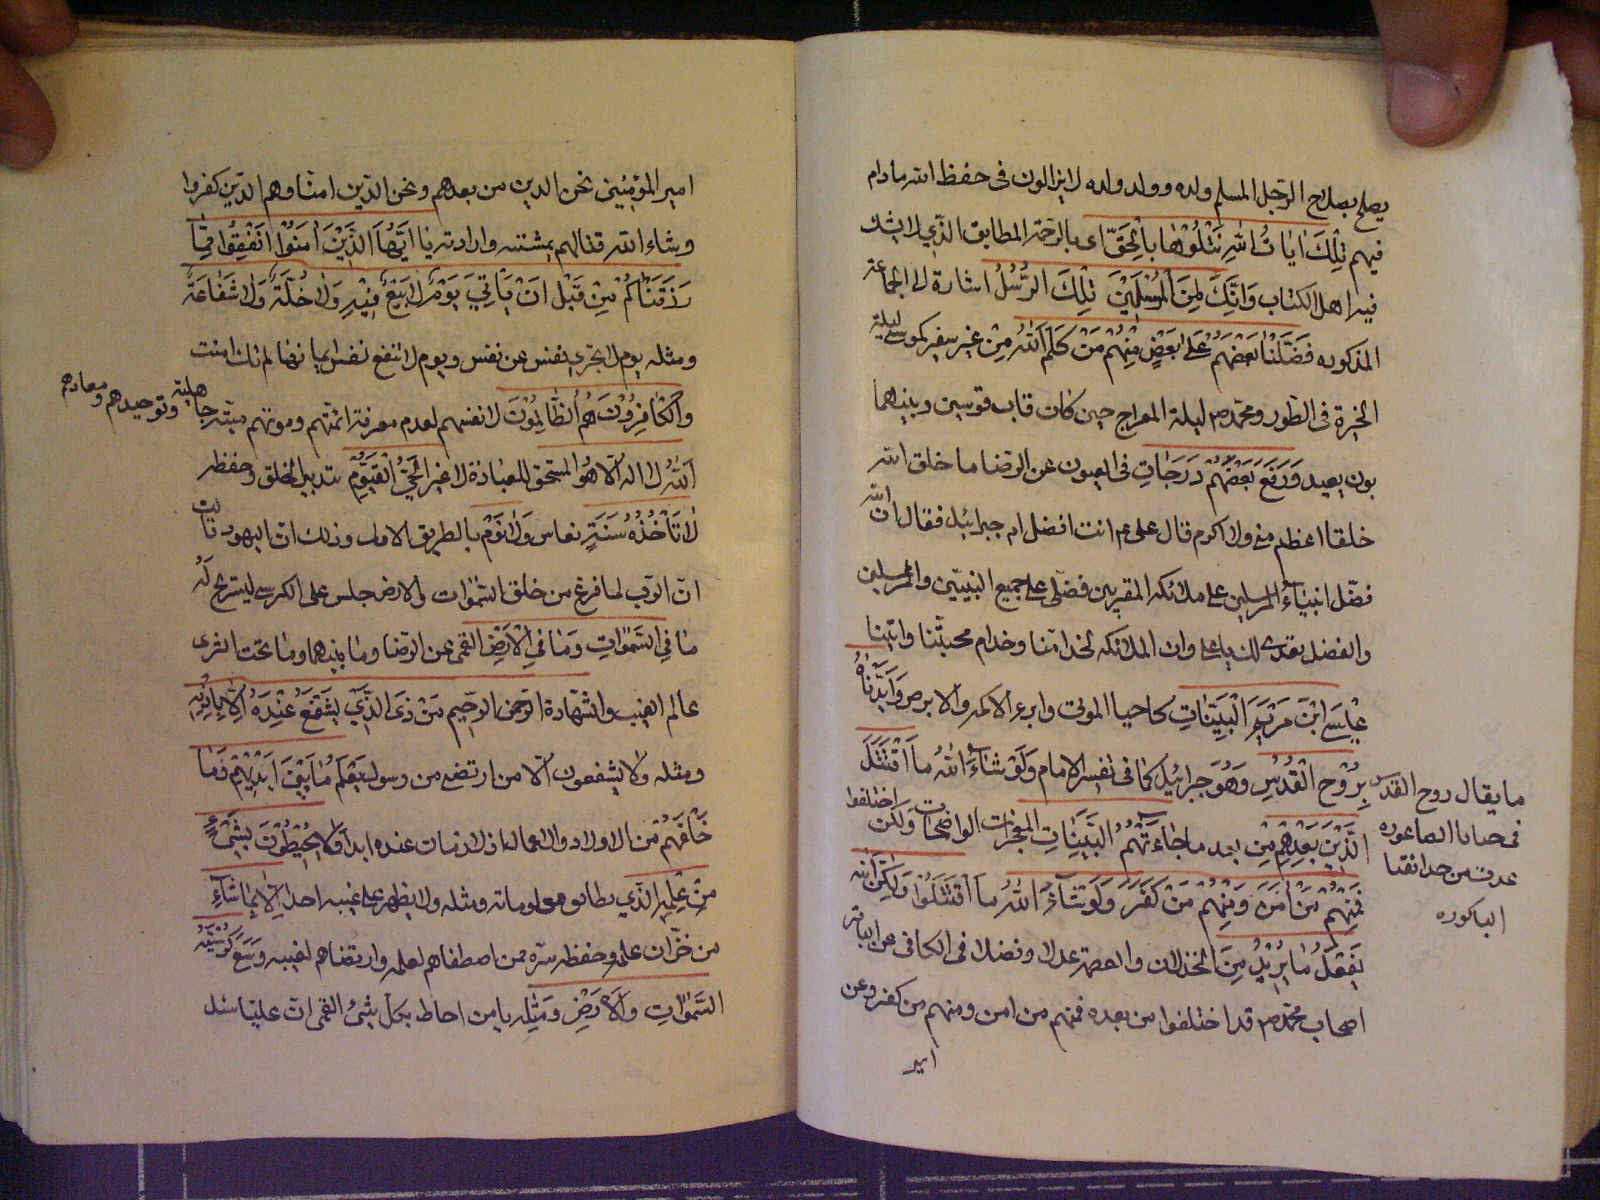 يصلح بصلاح الرّجل المسلم ولده وولد ولده لايزالون فى حفظ الله مادام
فيهم تِلْكَ اٰيَاتُ اللهِ نَتْلُوْهَا بِالْحَقِّ اى بالوجه المطابق الّذي لايشك
فيه اهل الكتاب وَاِنَّكَ لَمِنَ الْمُرْسَلِيْنَ تِلْكَ الرُّسُلُ اشارة الى الجماعة
المذكوره فَضَّلْنَا بَعْضَهُمْ عَلٰى بَعْضٍ مِنْهُمْ مَنْ كَلَّمَ اللهُ مِنْ غير سفير كموسى ليلة
الخيرة فى الطّور ومحمّد ص ليلة المعراج حين كان قاب قوسين وبينهما
بون بعيد وَرَفَعَ بَعْضَهُمْ دَرَجَاتٍ فى العيون عن الرضا ما خلق الله
خلقا اعظم منى ولا اكرم قال على ع م انت افضل ام جبرائيل فقال ان الله
فضّل انبيائه المرسلين على ملائكته المقربين فضّلى على جميع النبيّين والمرسلين
والفضل بعدى لك يا على وان الملائكه لخدامنا وخدام محبيّنا واٰتينا
عِيْسَى ابْنَ مَرْيَمَ الْبَيِّنَاتِ كاحياء الموتى وابرء الاكمه والابرص وَاَيَّدْنَاهُ
بِرُوْحِ الْقُدُسِ وَهُوَ جبرائيل كما فى تفسير الامام وَلَوْ شَاءَ اللهُ مَا اقْتَتَلَ
الَّذِيْنَ بَعْدِهِمْ مِنْ بعد ما جَاءَتْهُمُ الْبَيِّنَاتِ المعجزات الواضحات وَلٰكن اختلفوا
فَمِنْهُمْ مَنْ اٰمَنَ وَمِنْهُمْ مَنْ كَفَرَ وَلَوْ شَاءَ اللهُ مَا اقْتَتَلُوْا وَلٰكِنَّ اللهَ
يَفْعَلُ مَا يُرِيْدُ مِنَ الخذلان والعصمة عدلا وفضلا فى الكافى عن الباقر
اصحاب محمّد ص قد اختلفوا من بعده فمنهم من امن ومنهم من كفر وعن
امير
ما يقال روح القدس
فى جنان الصاغوره
من حدائقنا
الباكوره
امير المؤمنين نحن الذين من بعدهم ونحن الّذين امنّا وهم الّذين كفروا
وشاء الله قتالهم بمشيّته وارادته يَا اَيُّهَا الَّذِيْنَ اٰمَنُوْا اَنْفِقُوْا مِمَّا
رَزَقْنَاكُمْ مِنْ قَبْلِ اَنْ يَأْتِيَ يَوْمٌ لَا بَيْعٌ فِيْهِ وَلَا خُلَّةٌ وَلَا شَفَاعَةٌ
ومثله يوم لا تجزى نفس عن نفس ويوم لا تنفع نفس ايمانها لم تك امنت
وَالْكَافِرُوْنَ هُمُ الظَّالِمُوْنَ لانفسهم لعدم معرفة ائمّتهم وموتهم ميتة جاهلية وتوحيدهم ومعادهم
اَللهُ لَا اِلٰهَ اِلَّا هُوَ المستحق للعبادة لا غير الْحَيُّ الْقَيُّوْمُ بتدبير الخلق وحفظه
لَا تَأْخُذُهُ سِنَةٌ نعاس وَلَا نَوْمٌ بالطريق الاولى وذلك ان اليهود قالت
انّ الرّب لما فرغ من خلق السّمٰوات والارض جلس على الكرسى ليستريح لَهُ
مَا فِي السَّمٰوَاتِ وَمَا فِي الْاَرْضِ القمى عن الرّضا وما بينهما وما تحت الثرى
عالم الغيب والشّهادة الرّحمن الرّحيم مَنْ ذَى الَّذِيْ يَشْفَعُ عِنْدَهُ اِلَّا بِاِذْنِهِ
ومثله ولا يشفعون الّا من ارتضى من رسول يَعْلَمُ مَا بَيْنَ اَيْدِيْهِمْ وَمَا
خَلْفَهُمْ من الاولاد والاعمال اذ لا زمان عنده ابدا وَلَا يُحِيْطُوْنَ بِشَيْءٍ
مِنْ عِلْمِهِ الّذي يطابق معلوماته ومثله ولا يظهر على غيبه احدا اِلَّا بِمَا شَاءَ
من خزّان علمه وحفظه سرّه ممن اصطفاهم لعلمه وارتضاهم لغيبه وَسِعَ كُرْسِيُّهُ
السَّمٰوَاتِ وَالْاَرْضِ وَمثله يا من احاط بكل شيئ القمى ان عليّا سئل